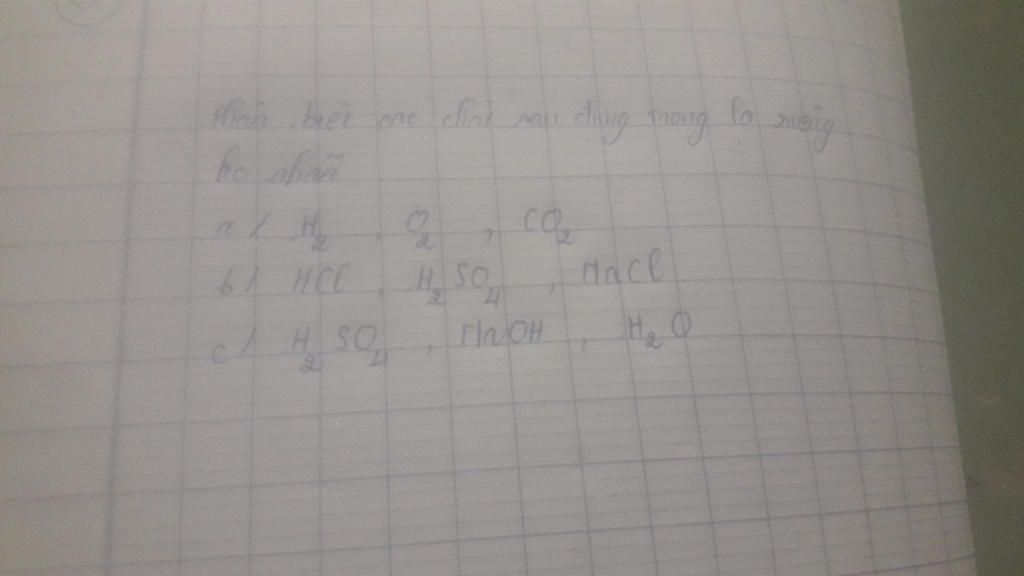 phân biệt các chất sau đựng trong lọ riêng
bị nhãn
a/ H₂, O₂, CO₂
b/ HCl, H₂SO₄, NaCl
c/ H₂SO₄, NaOH, H₂O